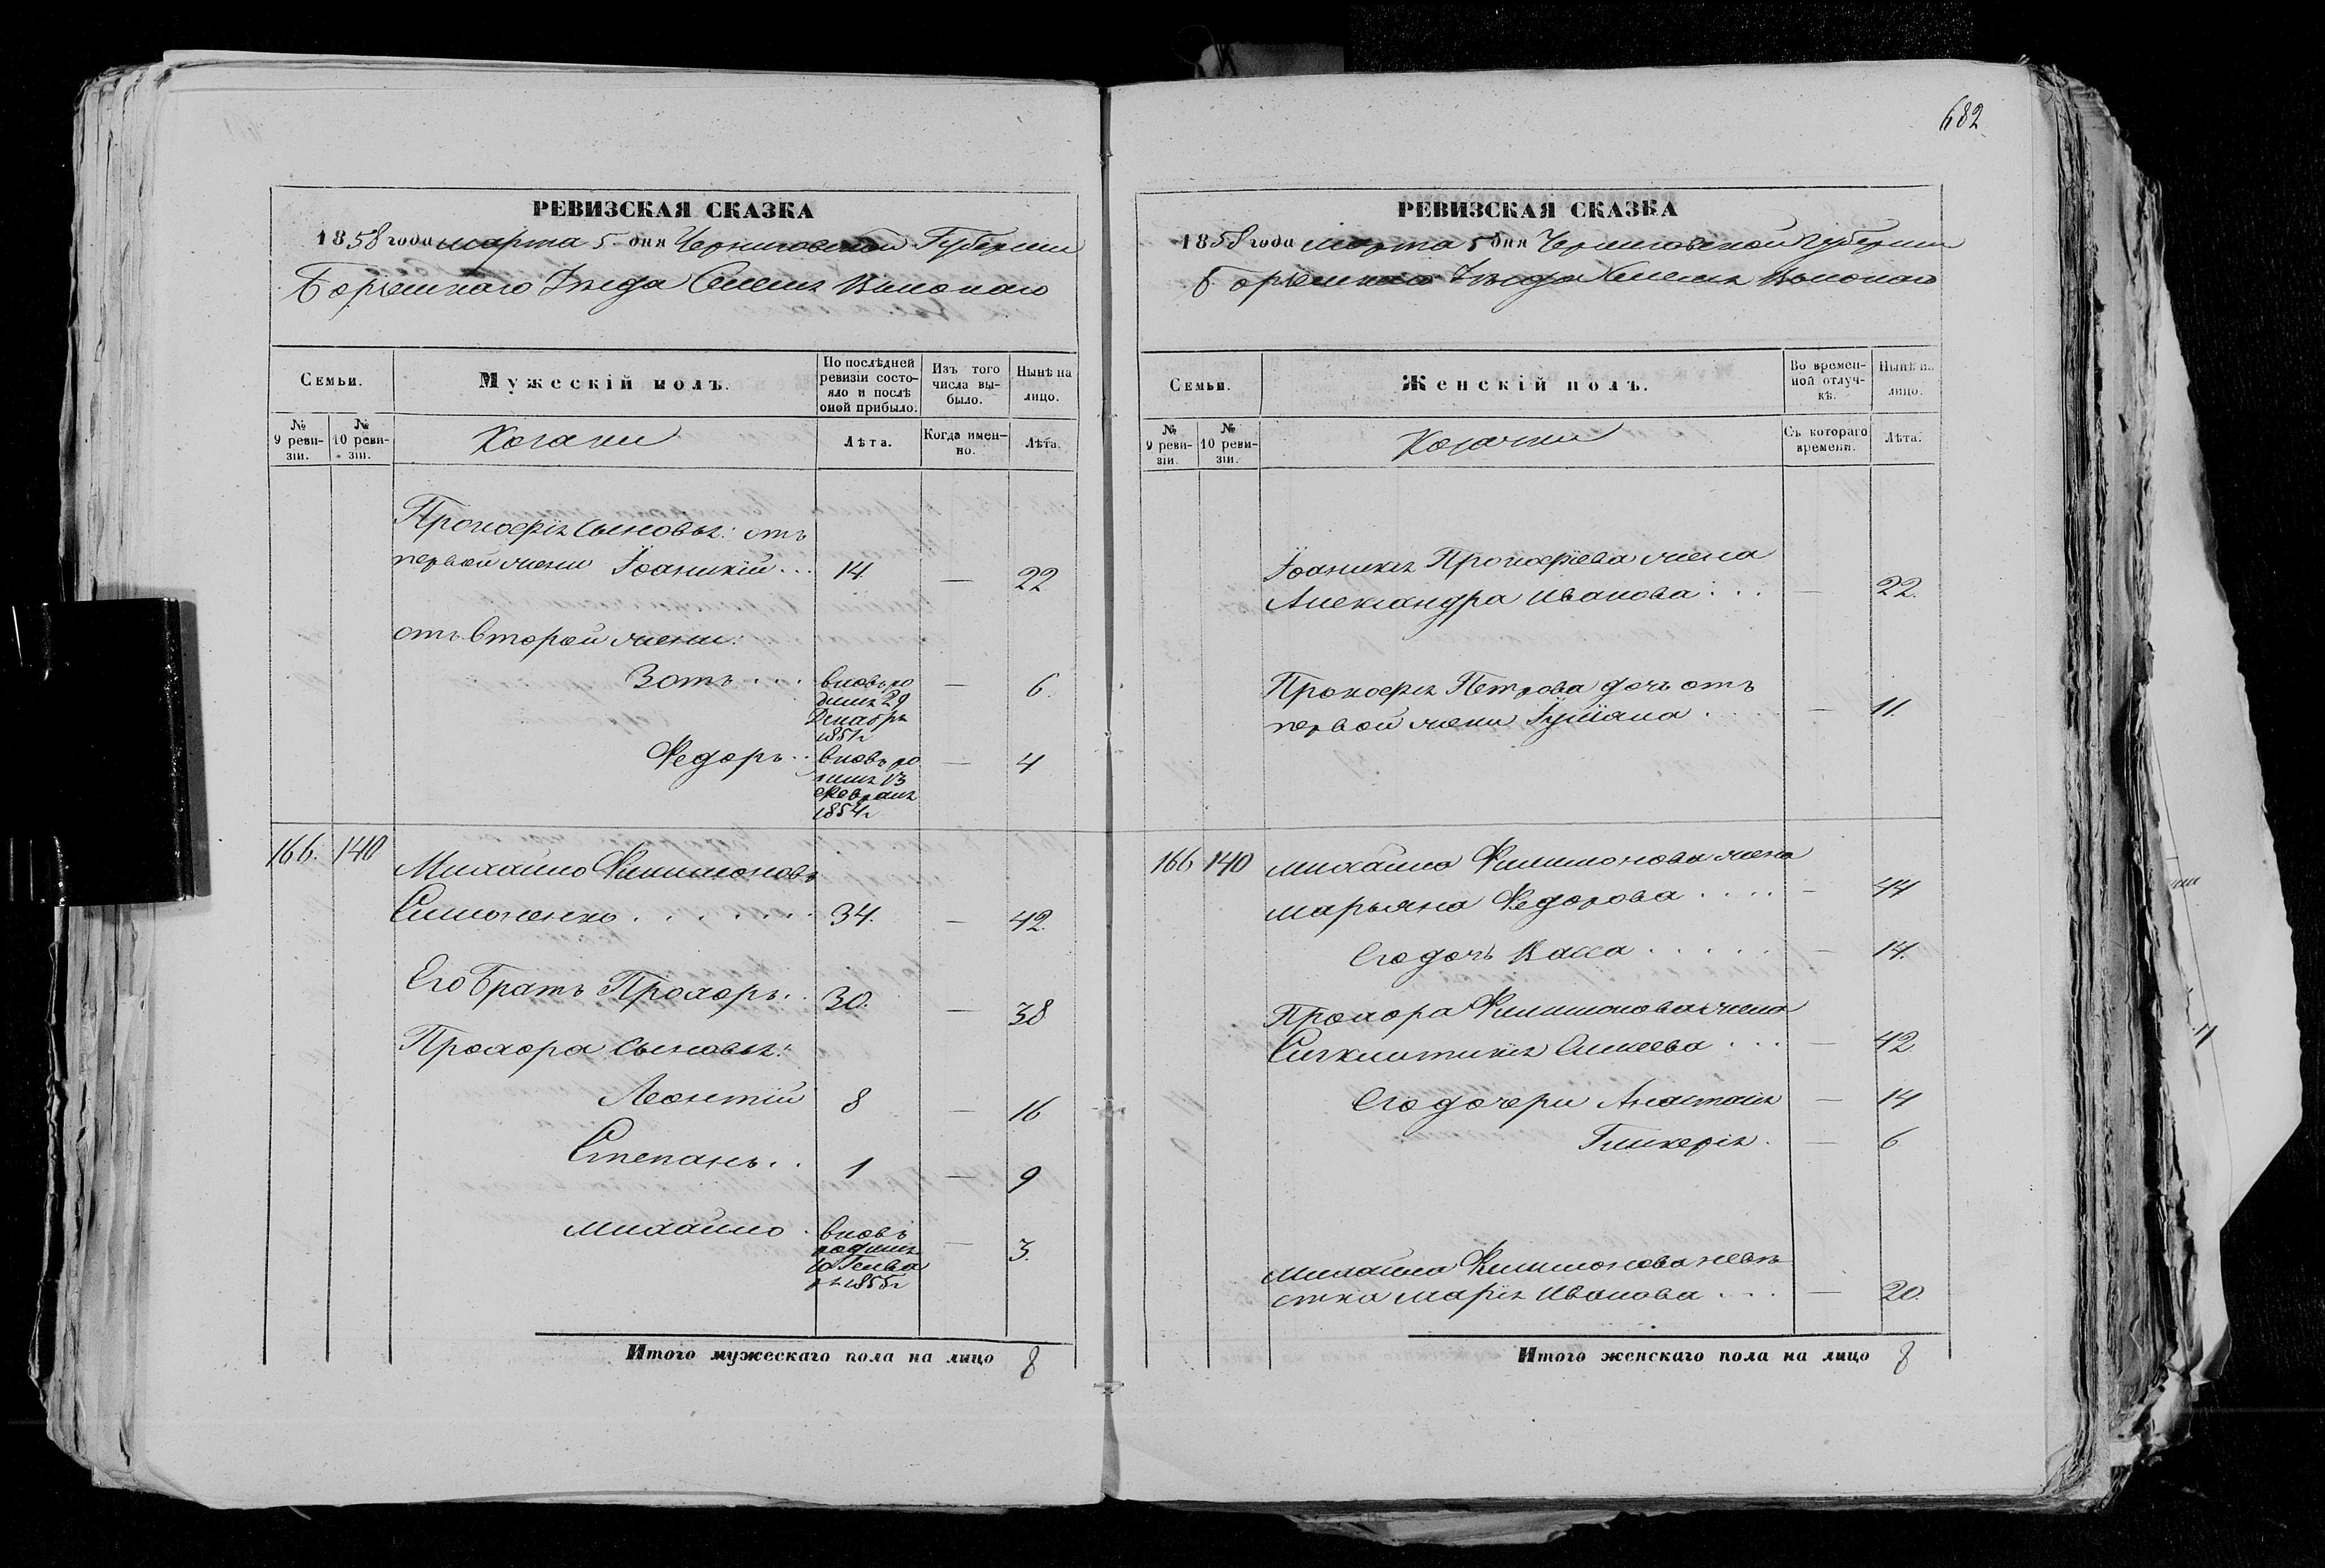 682
РЕВИЗСКАЯ СКАЗКА
1858 года марта 5 дня Черниговской Губернии
Борзенского Уѣзда Селенія
Семьи.
Мужескій полъ.
По послѣдней ревизіи состояло и послѣ оной прибыло.
Изъ того числа выбыло.
Нынѣ на лицо.
№ 9 ревизіи.
№ 10 ревизіи.
Козаки
Лѣта.
Когда именно.
Лѣта.
Прокофія сыновья: отъ
первой жены Іоаникій... 14 — 22
отъ второй жены:
Зотъ.... вновь ро — 6.
дился 29
Декабря
1851 г
Федоръ.. вновь ро — 4
дился 13
Февраля
1854 г
166. 140 Михайло Филимоновъ
Симоненко....... 34. — 42.
Его братъ Прохоръ.. 30. — 38
Прохора сыновья:
Леонтій 8 — 16
Степанъ.. 1 — 9
Михайло. вновь — 3.
родился
10 Генва
ря 1855 г
Итого мужескаго пола на лицо 8
РЕВИЗСКАЯ СКАЗКА
1858 года Марта 5 дня Черниговской Губернии
Борзенского Уѣзда Селенія
Семьи.
Женскій полъ.
Во временной отлучкѣ.
Нынѣ на лицо.
№ 9 ревизіи.
№ 10 ревизіи.
Козачки
Съ котораго времени.
Лѣта.
Іоаникія Прокофіева жена
Александра Иванова... — 22.
Прокофія Петрова дочь отъ
первой жены Іуліяна.... — 11.
166 140 Михайла Филимонова жена
Марьяна Федорова.... — 44
Его дочь Васса..... — 14.
Прохора Филимонова жена
Синклитикія Алисеева... — 42
Его дочери Анастасія — 14
Гликерія. — 6
Михайла Филимонова невѣ
стка Марія Иванова... — 20.
Итого женскаго пола на лицо 8